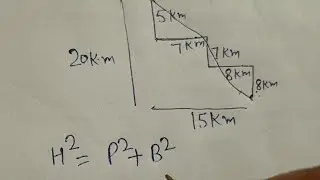 5Km
7Km
7Km
20Km
8Km
8Km
15Km
H² = P² + B²